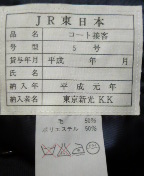 JR東日本
品名 コート接客
号型 5号
貸与年月 平成 年 月
氏名
納入年 平成元年
納入者名 東京新光K.K
毛 50%
ポリエステル 50%